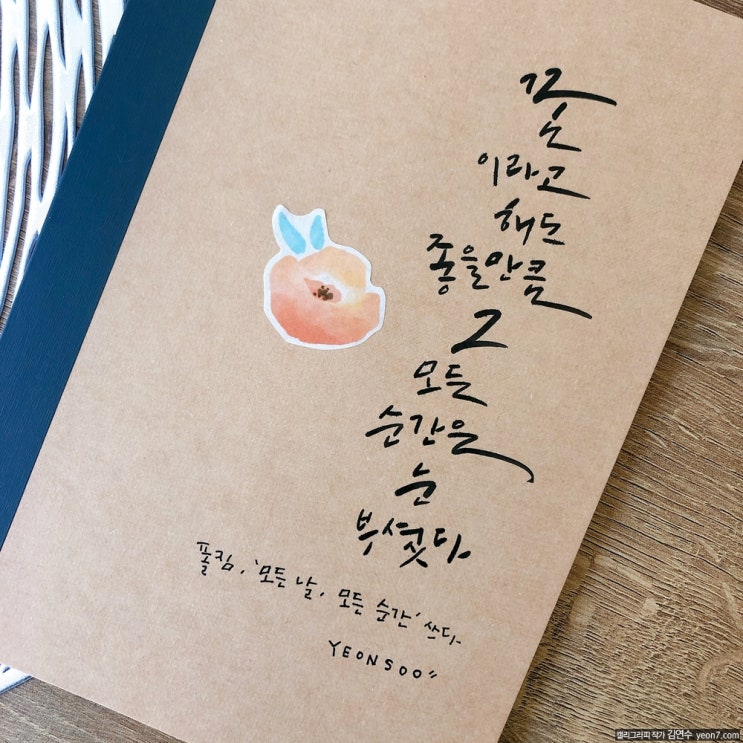 꿈
이라고
해도
좋을만큼
그
모든
순간은
눈
부셨다
폴킴, '모든 날, 모든 순간' 쓰다.
YEONSOO"
캘리그라피 작가 김연수 yeon7.com